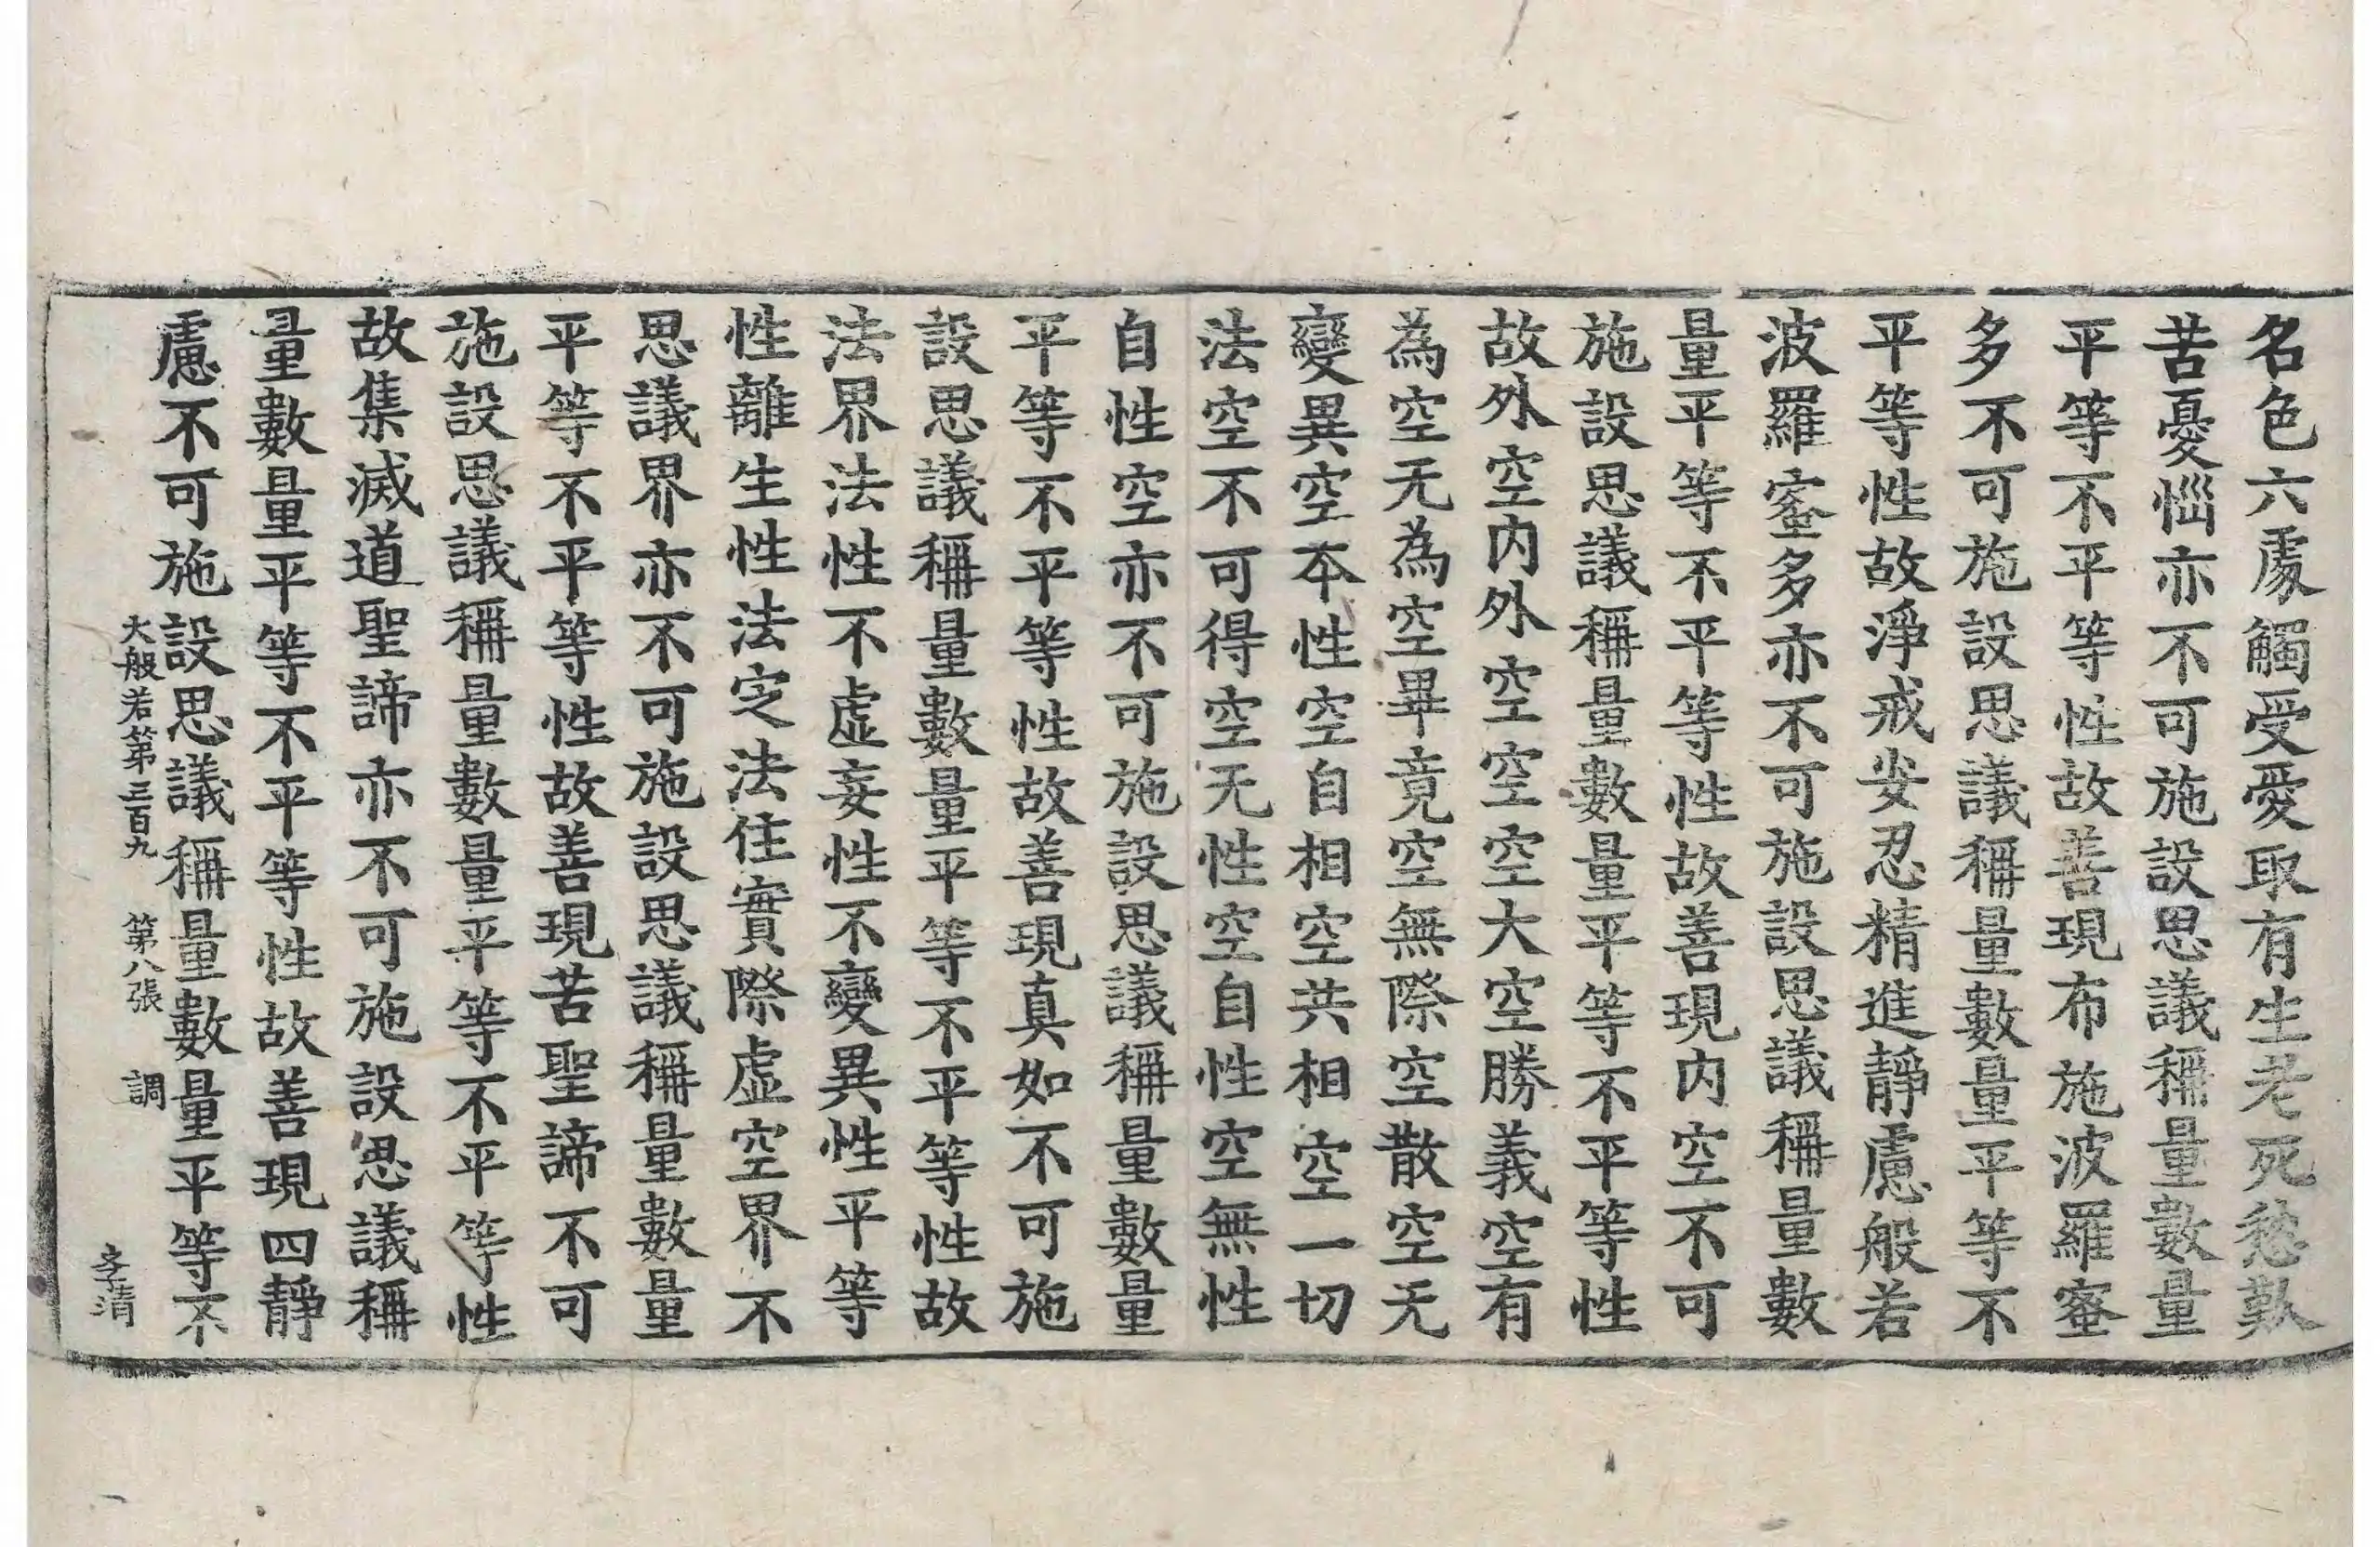 名色六處觸受愛取有生老死愁歎
苦憂惱亦不可施設思議稱量數量
平等不平等性故善現布施波羅蜜
多不可施設思議稱量數量平等不
平等性故淨戒安忍精進靜慮般若
波羅蜜多亦不可施設思議稱量數
量平等不平等性故善現内空不可
施設思議稱量數量平等不平等性
故外空内外空空空大空勝義空有
為空无為空畢竟空無際空散空无
變異空本性空自相空共相空一切
法空不可得空无性空自性空無性
自性空亦不可施設思議稱量數量
平等不平等性故善現真如不可施
設思議稱量數量平等不平等性故
法界法性不虛妄性不變異性平等
性離生性法定法住實際虛空界不
思議界亦不可施設思議稱量數量
平等不平等性故善現苦聖諦不可
施設思議稱量數量平等不平等性
故集滅道聖諦亦不可施設思議稱
量數量平等不平等性故善現四靜
慮不可施設思議稱量數量平等不
大般若第三百九　第八張　調　李清